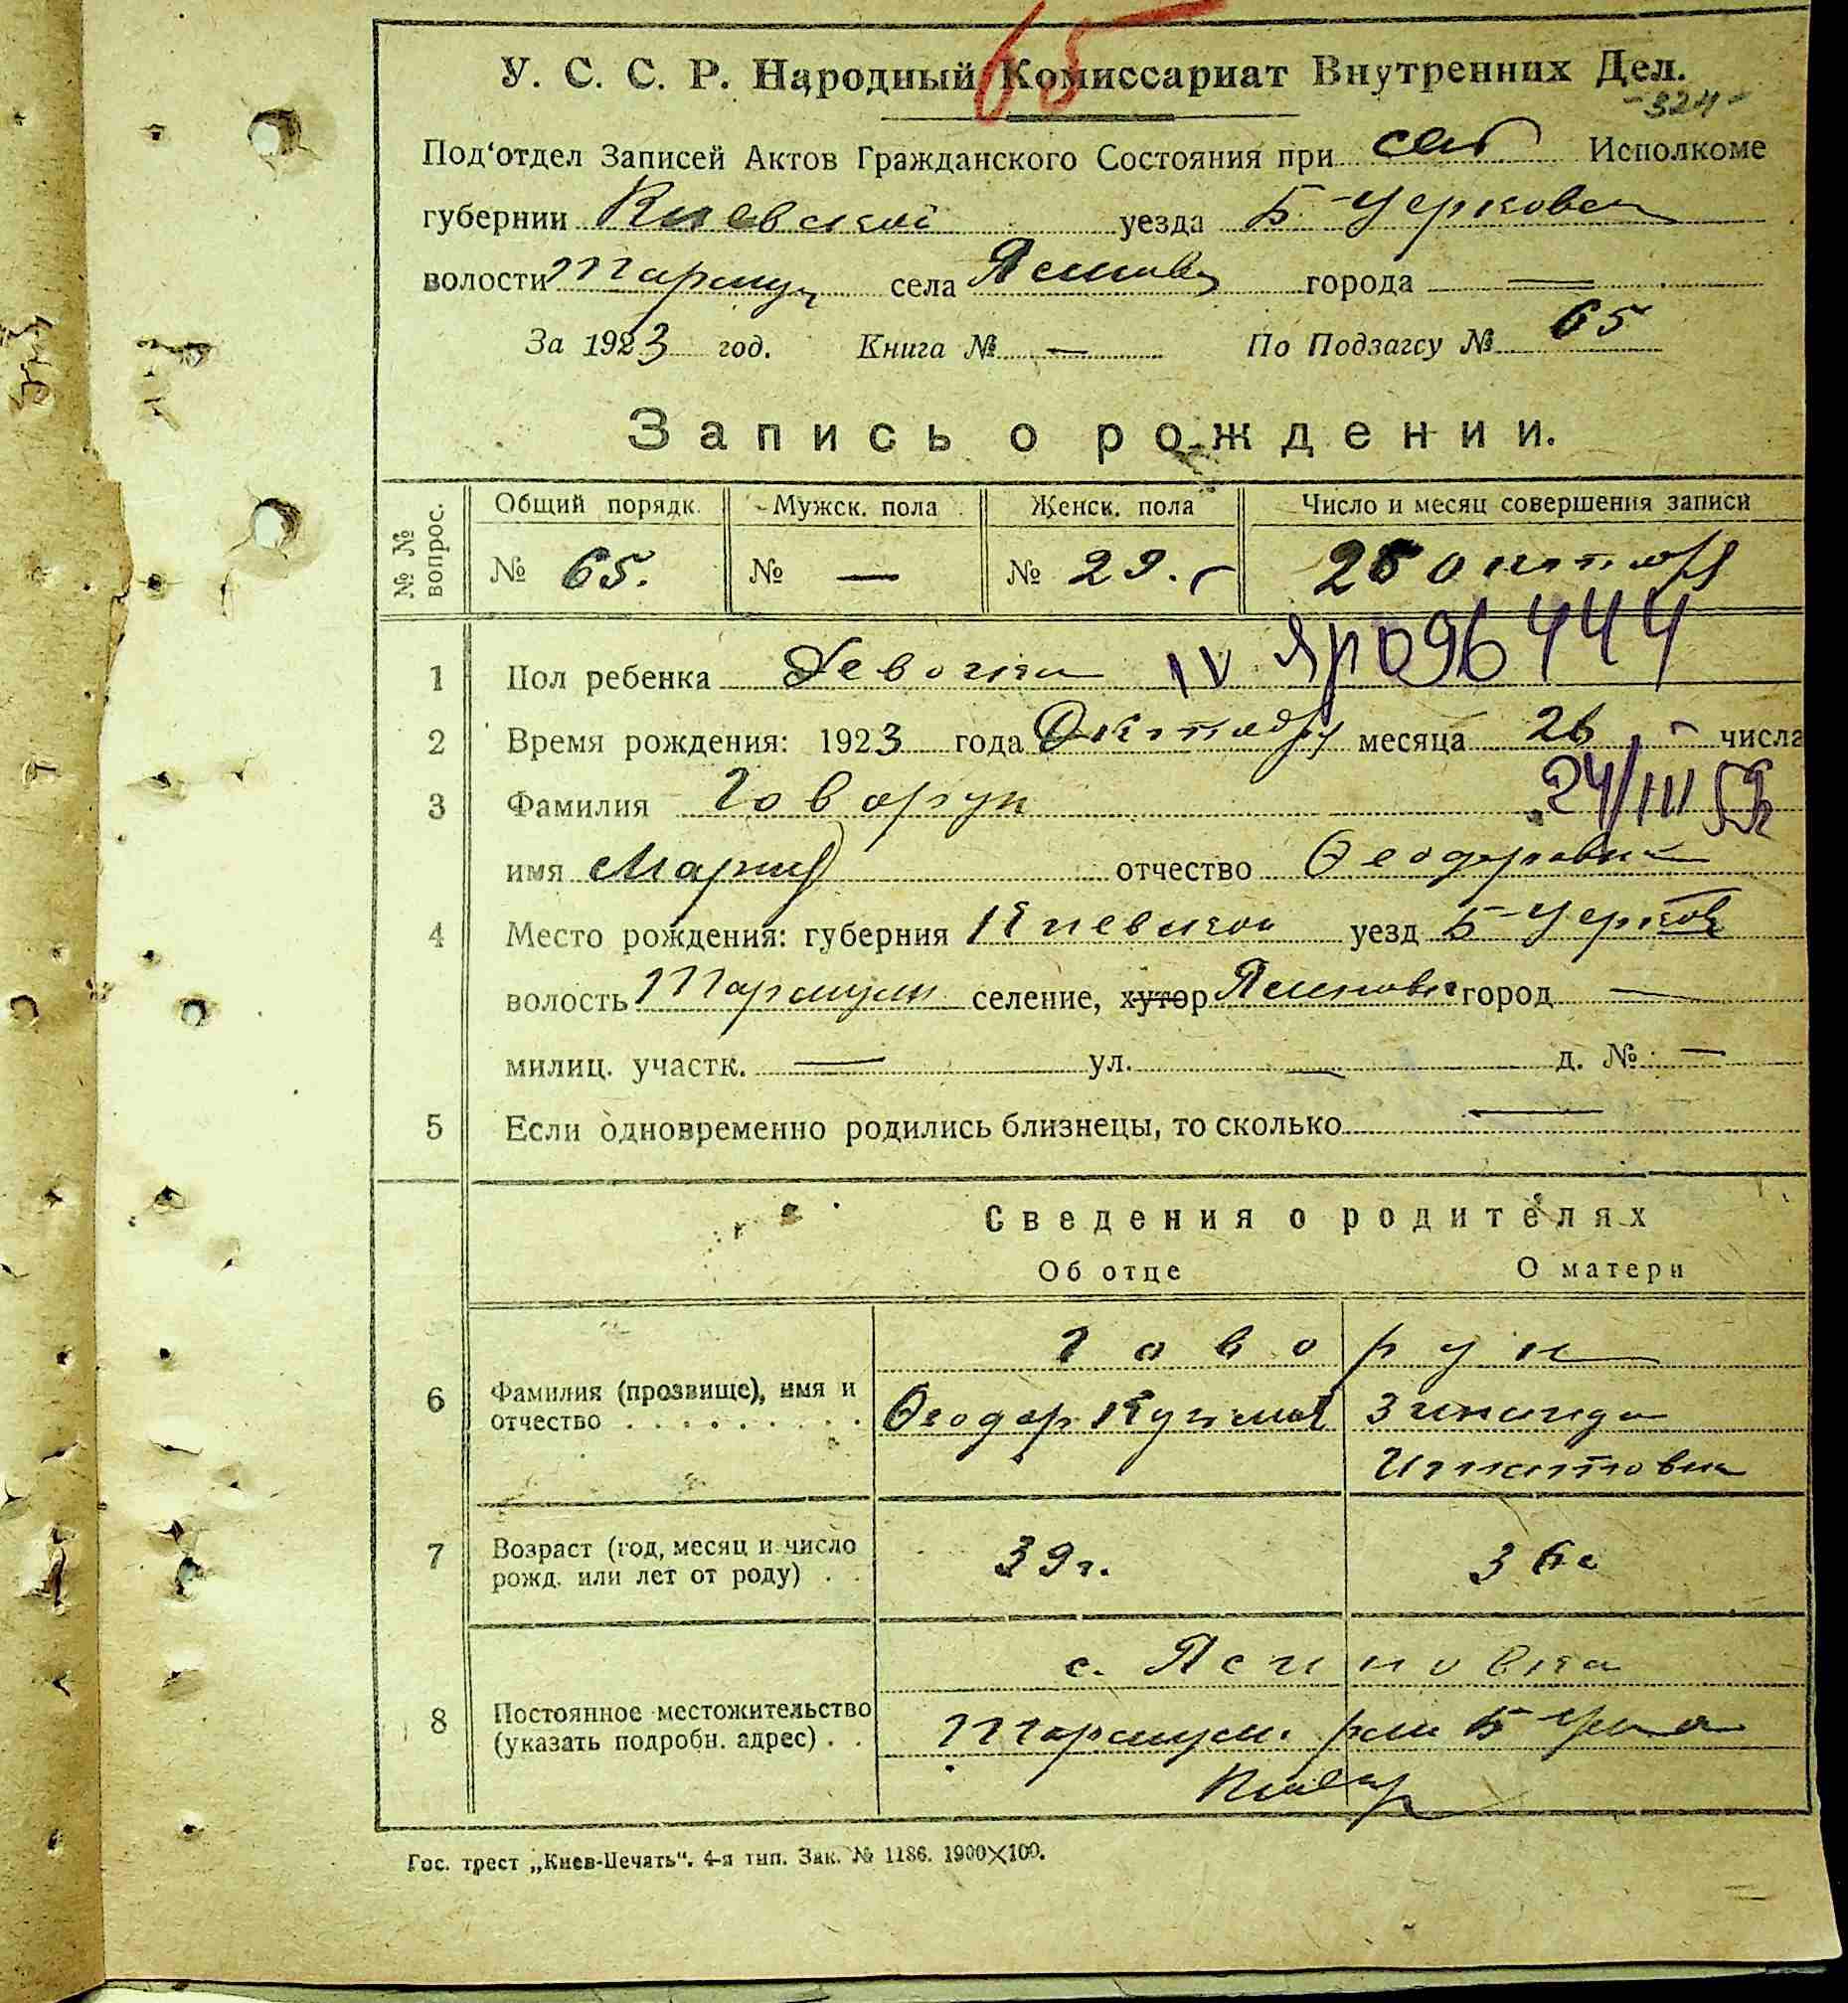 65
У. С. С. Р. Народный Комиссариат Внутренних Дел.
-324-
Под'отдел Записей Актов Гражданского Состояния при сель Исполкоме
губернии Киевской уезда Б-Церковск
волости Таращ села Ясиновк города —
За 1923 год. Книга № — По Подзагсу № 65
Запись о рождении.
№ № вопрос. Общий порядк. Мужск. пола Женск. пола Число и месяц совершения записи
№ 65. № — № 29. 26 октября
1 Пол ребенка Девочка IV ЯР 096444
2 Время рождения: 1923 года Октября месяца 26 числа
3 Фамилия Говорун 24/III 59
имя Мария отчество Феодоровна
4 Место рождения: губерния Киевской уезд Б-Церков
волость Таращан селение, хутор Ясиновка город —
милиц. участк. — ул. — д. № —
5 Если одновременно родились близнецы, то сколько —
Сведения о родителях
Об отце О матери
Говорун
6 Фамилия (прозвище), имя и отчество Феодор Кузьмов Зинаида
Игнатовна
7 Возраст (год, месяц и число рожд. или лет от роду) 39 г. 36
с. Ясиновка
8 Постоянное местожительство (указать подробн. адрес) Таращан. Б-Церк
Гос. трест „Киев-Печать". 4-я тип. Зак. № 1186. 1900×100.